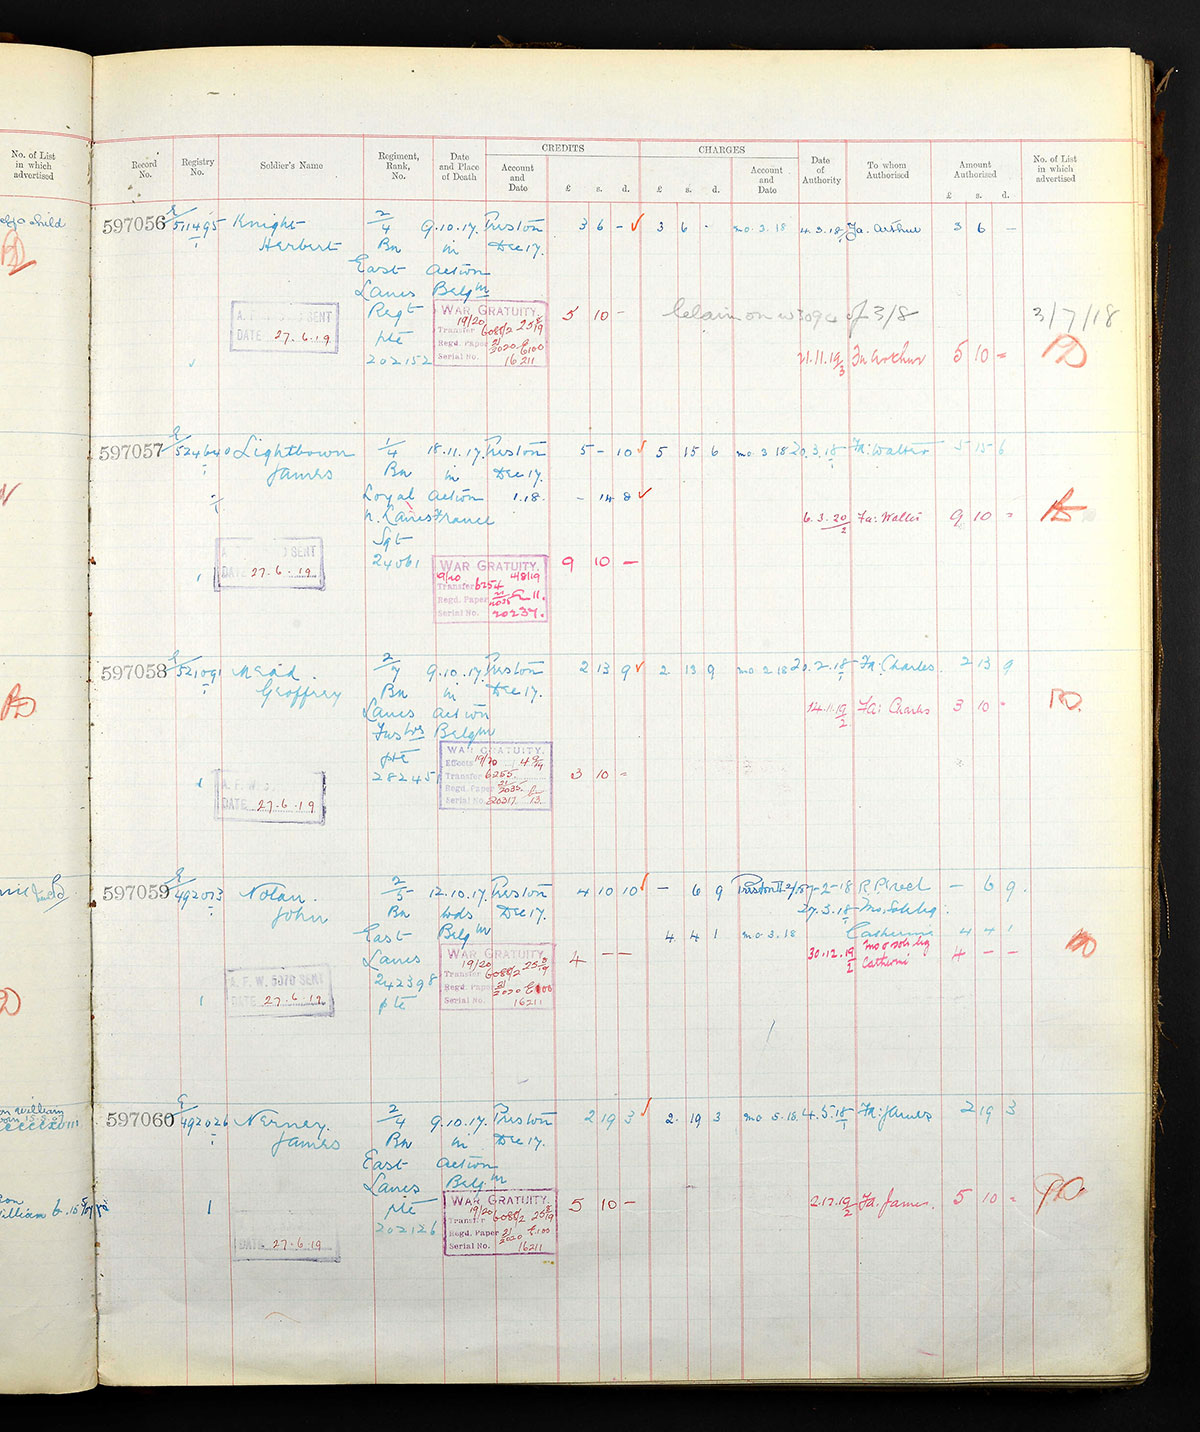 No. of List
in which
advertised
Record
No.
Registry
No.
Soldier's Name
Regiment,
Rank,
No.
Date
and Place
of Death
CREDITS
Account
and
Date
£ s. d.
CHARGES
£ s. d.
Account
and
Date
Date
of
Authority
To whom
Authorised
Amount
Authorised
£ s. d.
No. of List
in which
advertised
child
597056 511495 Knight 2/4 9.10.17. Preston 3 6 - 3 6 - mo. 3.18 4.3.18 Fa. Arthur 3 6 -
Herbert Bn in Dec 17.
East Action
Lancs Belgm
Regt WAR GRATUITY. 5 10 - Claim on W3094 of 3/8 3/7/18
A. F. W. SENT
DATE 27.6.19
19/20
Transfer 6080/2 25 8/19
pte Regd. Paper 21/2020 E100
202152 Serial No. 16211
21.11.19/3 Fa Arthur 5 10 -
597057 524640 Lightbown 1/4 18.11.17. Preston 5 - 10 5 15 6 mo. 3 18 20.3.18 Fa: Walter 5 15 6
James Bn in Dec 17.
Loyal Action 1.18. - 14 8
N. Lancs France 6.3.20/2 Fa: Walter 9 10 -
Sgt
24061 WAR GRATUITY. 9 10 -
SENT
DATE 27.6.19
9/20 4/8/19
Transfer 6254
Regd. Paper 21/2035 11.
Serial No. 20237.
597058 521091 Mead. 2/7 9.10.17. Preston 2 13 9 2 13 9 mo 2.18 20.2.18 Fa. Charles. 2 13 9
Geoffrey Bn in Dec 17.
Lancs Action 14.11.19/2 Fa: Charles 3 10 -
Fusrs Belgm
pte WAR GRATUITY.
28245 Effects 19/20 4 9/19
Transfer 6255 3 10 -
Regd. Paper 21/2035
Serial No. 20317 13.
A. F. W.
DATE 27-6-19
597059 492013 Nolan. 2/5 12.10.17. Preston 4 10 10 - 6 9 Preston 7-2-18 R Pirect - 6 9.
John Bn wds Dec 17. 27.3.18 Mo. Sole leg.
East Belgm 4 4 1 mo. 3.18 Catherine 4 4 1
Lancs WAR GRATUITY. 4 - - 30.12.19/2 Mo & sole leg Catherine 4 - -
242398 19/20
pte Transfer 6080/2 25 8/19
Regd. Paper 21/2020 E100
Serial No. 16211
A. F. W. 5070 SENT
DATE 27-6-19
597060 492026 Nerney. 2/4 9.10.17. Preston 2 19 3 2. 19 3 mo 5.18. 4.5.18 Fa: James 2 19 3
James Bn in Dec 17.
East Action
Lancs Belgm
pte WAR GRATUITY. 5 10 - 2.12.19/2 Fa. James. 5 10 -
202126 19/20
Transfer 6080/2 25 8/19
Regd. Paper 21/2020 E100
Serial No. 16211
DATE 27-6-19